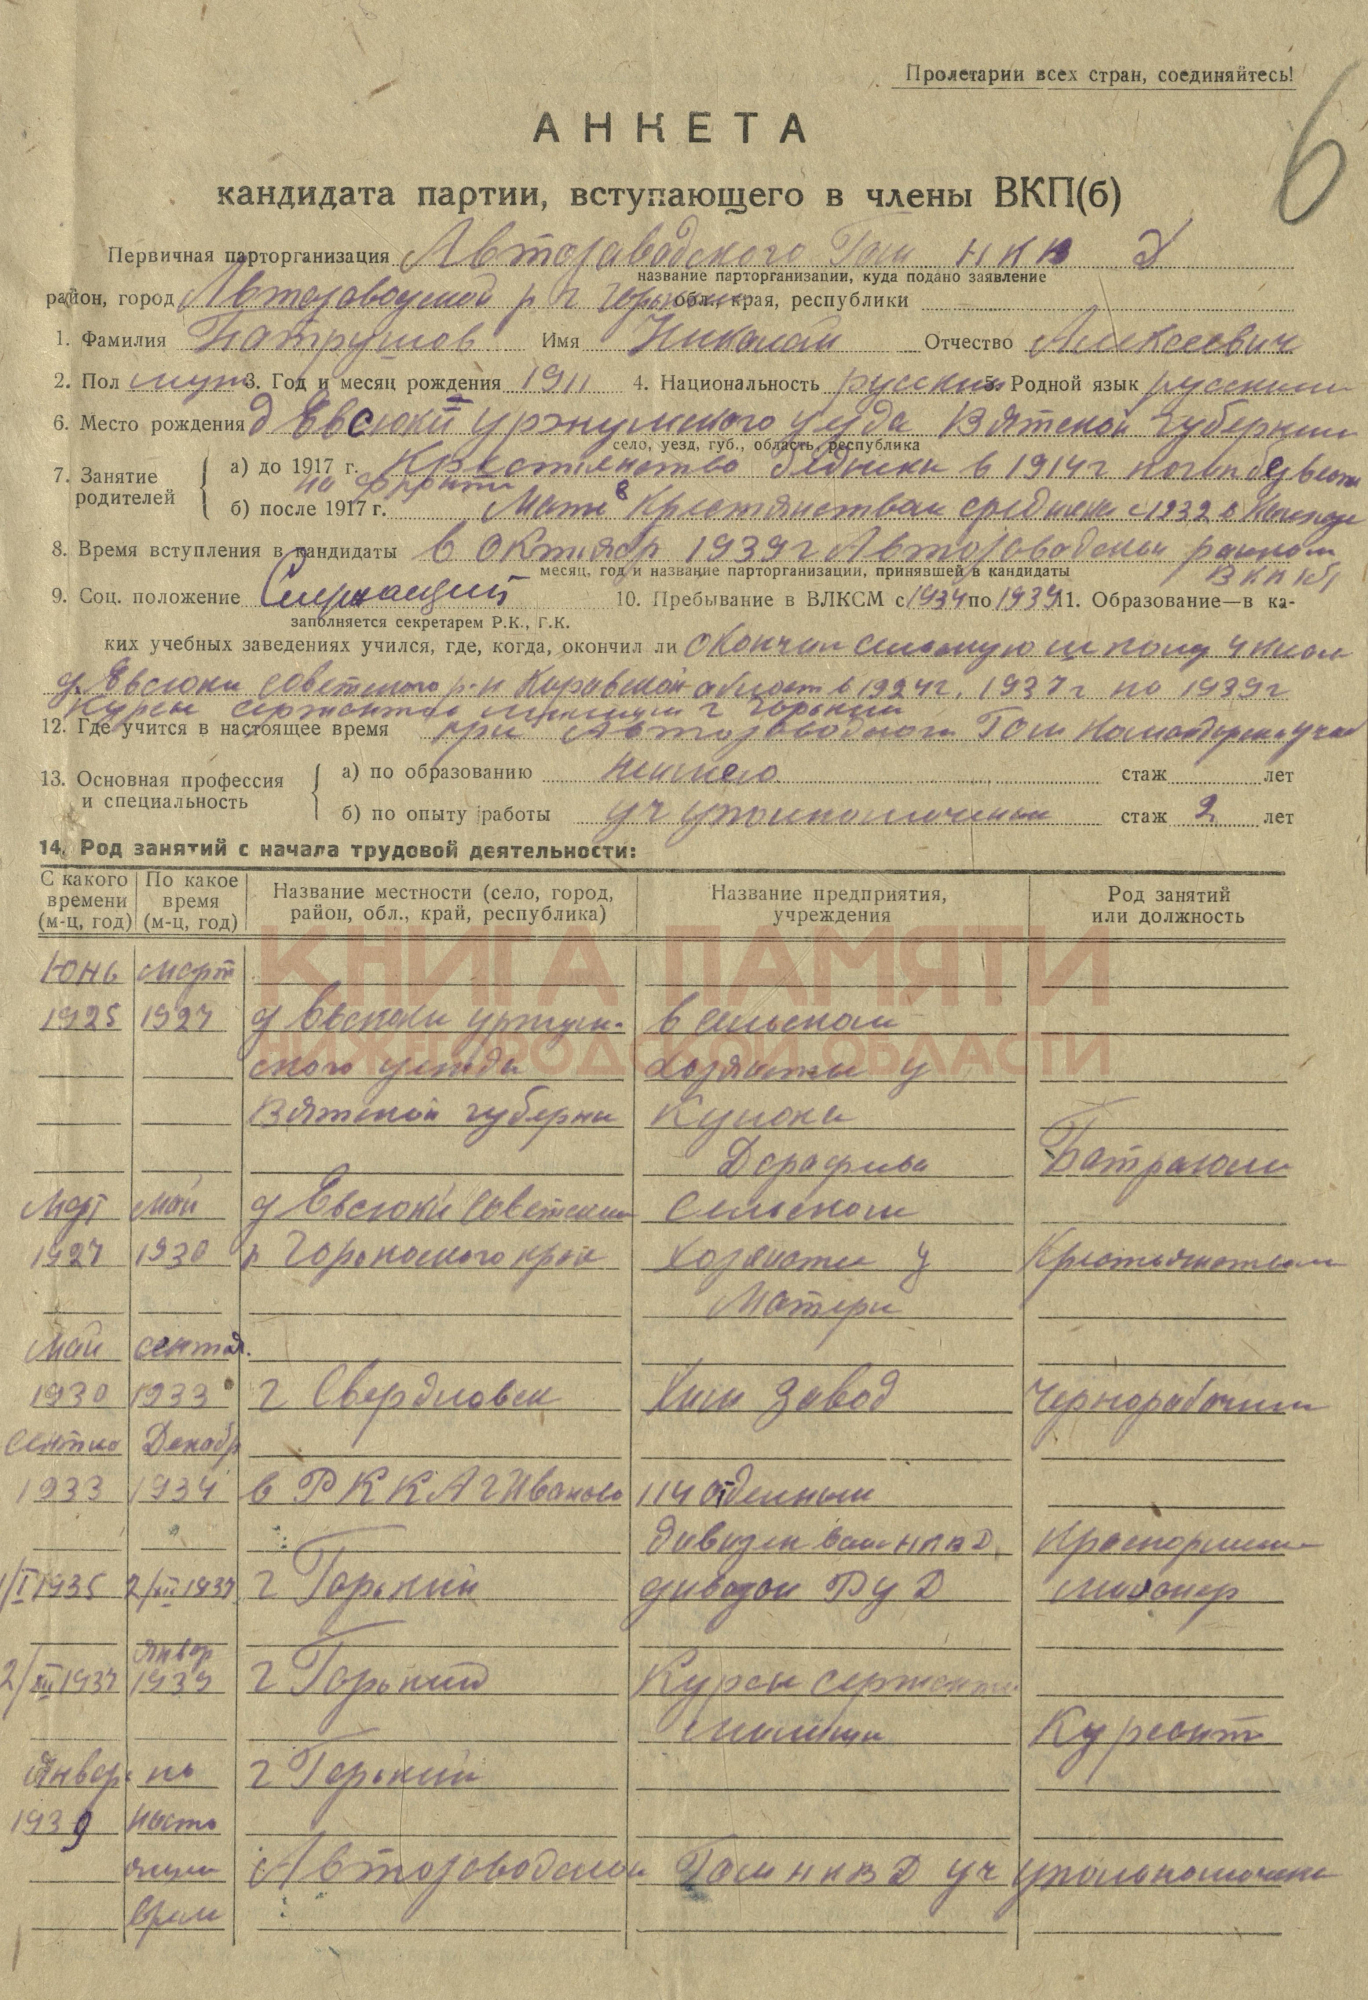 Пролетарии всех стран, соединяйтесь!
6
АНКЕТА
кандидата партии, вступающего в члены ВКП(б)
Первичная парторганизация Автозаводского Гом НКВД
название парторганизации, куда подано заявление
район, город Автозаводской р г Горький обл., края, республики
1. Фамилия Патрушов Имя Николай Отчество Алексеевич
2. Пол муж 3. Год и месяц рождения 1911 4. Национальность русский 5. Родной язык русский
6. Место рождения д Евсюки уржумского уезда Вятской губернии
село, уезд, губ., область, республика
7. Занятие родителей
а) до 1917 г. Крестянство бедняки в 1914 г погиб безвести
на фронте
б) после 1917 г. Мать в Крестянством средняки с 1932 в Колхозе
8. Время вступления в кандидаты в Октябр 1939 г Автозоводским райком
ВКП(б)
месяц, год и название парторганизации, принявшей в кандидаты
9. Соц. положение Служащий 10. Пребывание в ВЛКСМ с 1934 по 1939 11. Образование—в ка-
заполняется секретарем Р.К., Г.К.
ких учебных заведениях учился, где, когда, окончил ли окончил сельскую школу 4 клас
д. Евсюки советского р-н Кировской области в 1924 г. 1937 г по 1939 г
Курсы сержантов милиции г Горький
12. Где учится в настоящее время при Автозоводском Гом
13. Основная профессия и специальность
а) по образованию неимею стаж лет
б) по опыту работы уч уполномоченый стаж 2 лет
14. Род занятий с начала трудовой деятельности:
С какого времени (м-ц, год) По какое время (м-ц, год) Название местности (село, город, район, обл., край, республика) Название предприятия, учреждения Род занятий или должность
КНИГА ПАМЯТИ
НИЖЕГОРОДСКОЙ ОБЛАСТИ
Юнь март
1925 1927 д Евсюки уржум- в сельском
ского уезда хозяистве у
Вятской губерни Кулока
Дорафива Батраком
Март май д Евсюки Советский Сельском
1927 1930 р Горьковского край хозяистве у Крестьянством
Матери
Май сентяб.
1930 1933 г Свердловск Хим Завод Чернорабочим
Сентяб Декабр
1933 1934 в РККА г Иваново 114 отдельный
дивизон НКВД Красноормеец
1/I 1935 2/XII 1937 г Горький дивозон РУД Милионер
Январ
2/XII 1937 1939 г Горький Курсы сержантов
милиции Курсант
Январ по г Горький
1939 насто
ящие Автозоводской Гом НКВД уч уполномочены
врем